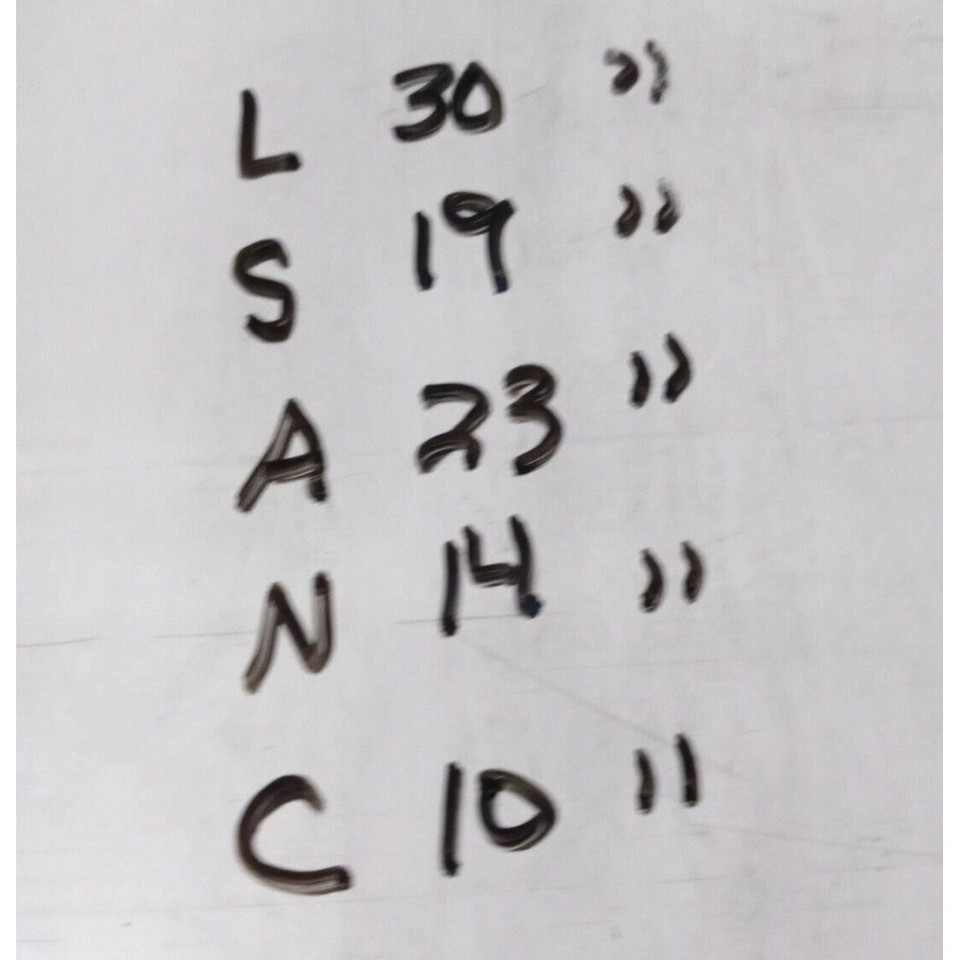 L 30 "
S 19 "
A 23 "
N 14 "
C 10 "